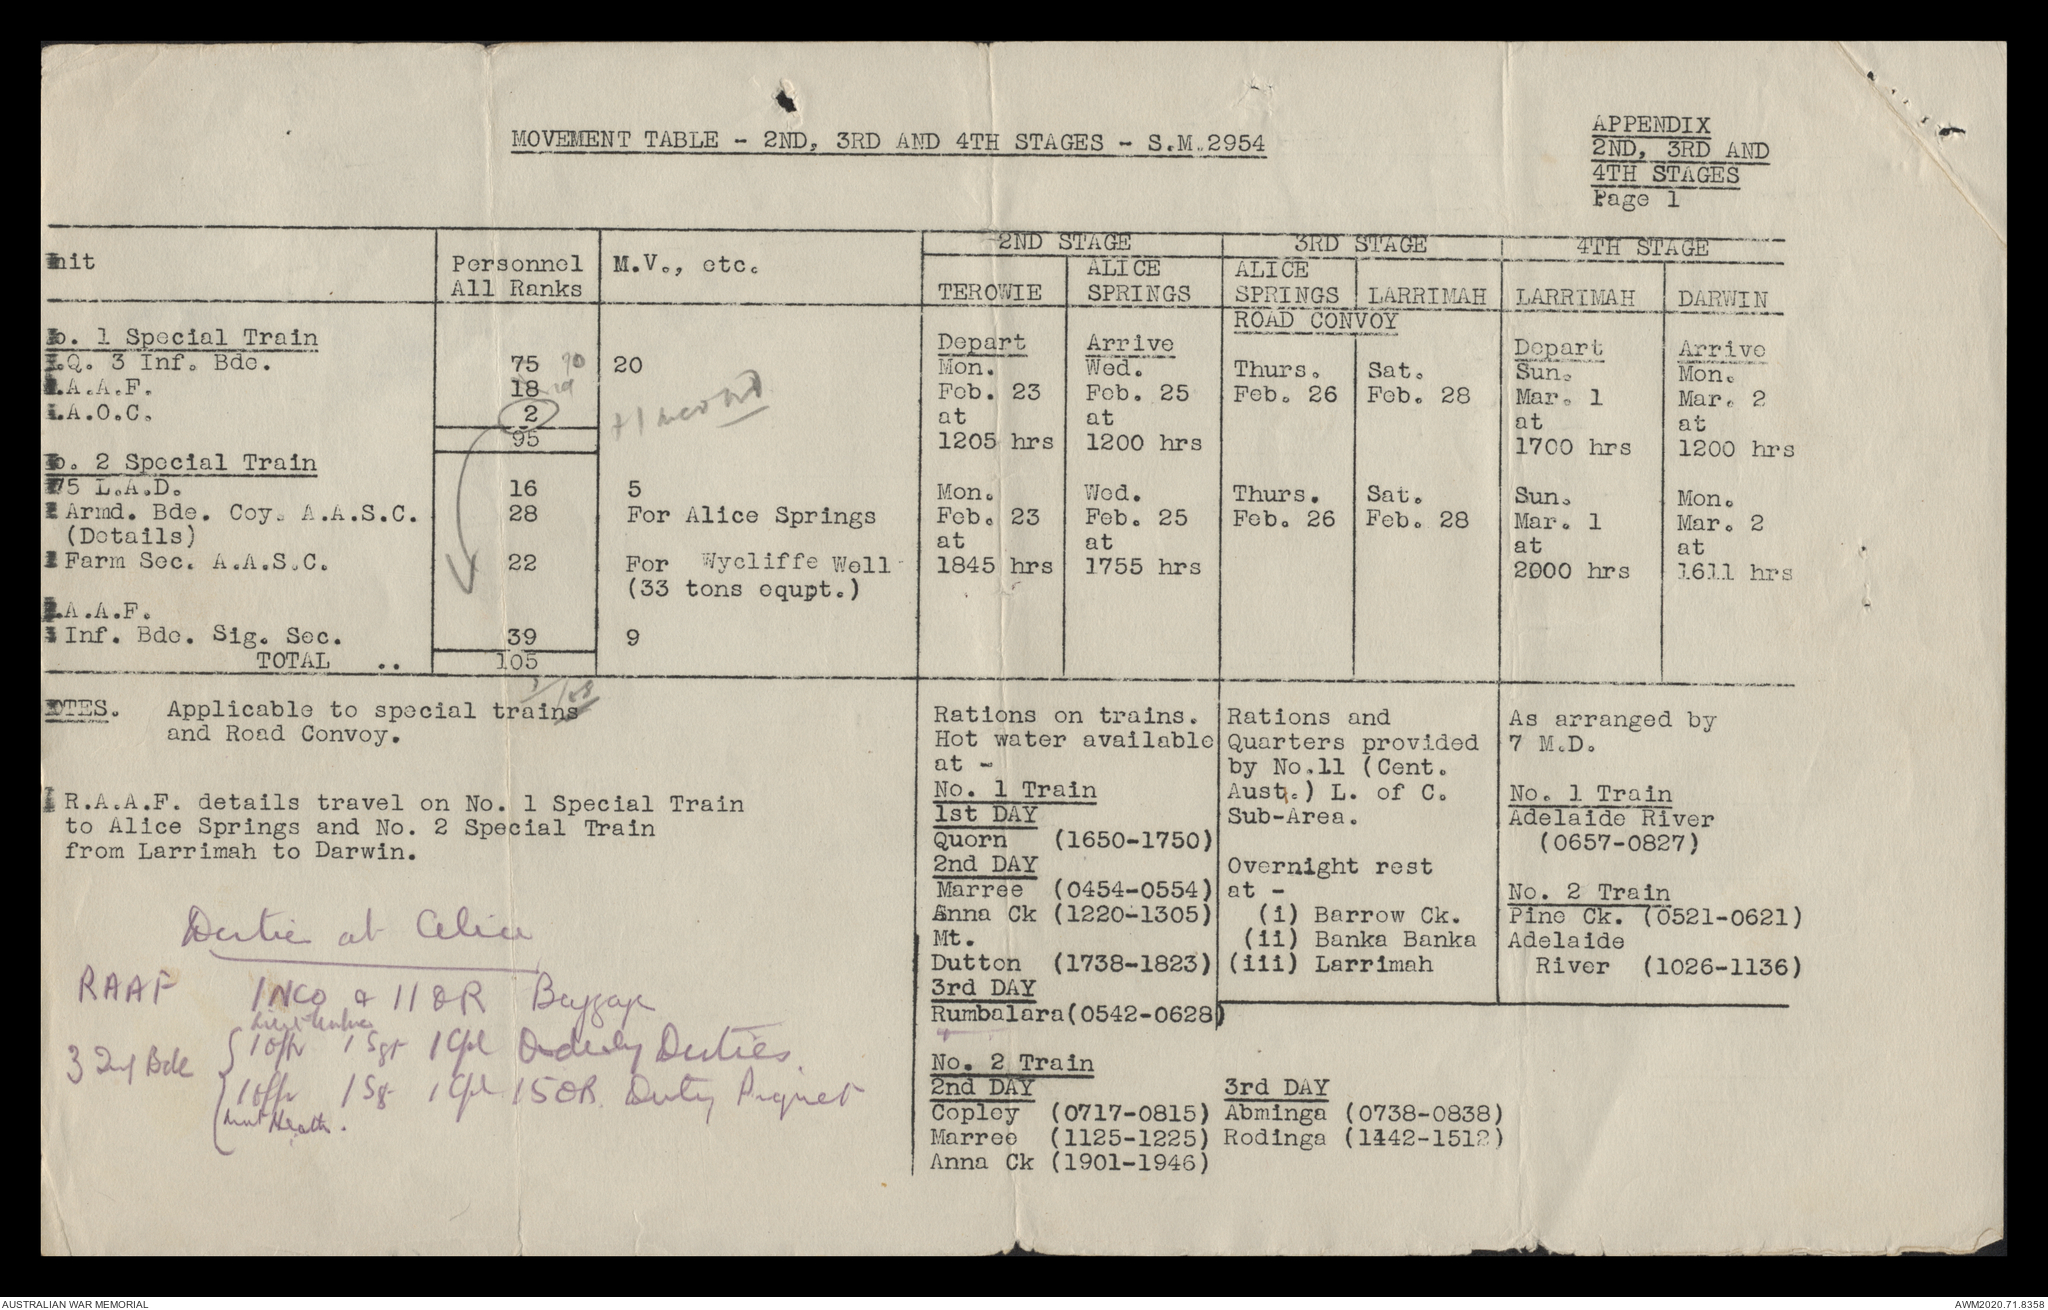 MOVEMENT TABLE - 2ND, 3RD AND 4TH STAGES - S.M.2954
APPENDIX
2ND, 3RD AND
4TH STAGES
Page 1
nit
Personnel
All Ranks
M.V., etc.
2ND STAGE
3RD STAGE
4TH STAGE
TEROWIE
ALICE
SPRINGS
ALICE
SPRINGS
LARRIMAH
LARRIMAH
DARWIN
ROAD CONVOY
o. 1 Special Train
.Q. 3 Inf. Bde.
75 90
20
.A.A.F.
18
.A.O.C.
2
95
Depart
Mon.
Feb. 23
at
1205 hrs
Arrive
Wed.
Feb. 25
at
1200 hrs
Thurs.
Feb. 26
Sat.
Feb. 28
Depart
Sun.
Mar. 1
at
1700 hrs
Arrive
Mon.
Mar. 2
at
1200 hrs
o. 2 Special Train
75 L.A.D.
16
5
Armd. Bde. Coy. A.A.S.C.
(Details)
28
For Alice Springs
Farm Sec. A.A.S.C.
22
For Wycliffe Well
(33 tons equpt.)
.A.A.F.
3 Inf. Bde. Sig. Sec.
39
9
TOTAL ..
105
Mon.
Feb. 23
at
1845 hrs
Wed.
Feb. 25
at
1755 hrs
Thurs.
Feb. 26
Sat.
Feb. 28
Sun.
Mar. 1
at
2000 hrs
Mon.
Mar. 2
at
1611 hrs
OTES. Applicable to special trains
and Road Convoy.
R.A.A.F. details travel on No. 1 Special Train
to Alice Springs and No. 2 Special Train
from Larrimah to Darwin.
Duties at Alice
RAAF 1 NCO & 11 OR Baggage
3 Inf Bde
1 Offr 1 Sgt 1 Cpl Orderly Duties
1 Offr 1 Sgt 1 Cpl 15 OR Duty Piquet
Rations on trains.
Hot water available
at -
No. 1 Train
1st DAY
Quorn (1650-1750)
2nd DAY
Marree (0454-0554)
Anna Ck (1220-1305)
Mt.
Dutton (1738-1823)
3rd DAY
Rumbalara(0542-0628)
No. 2 Train
2nd DAY
Copley (0717-0815)
Marree (1125-1225)
Anna Ck (1901-1946)
3rd DAY
Abminga (0738-0838)
Rodinga (1442-1512)
Rations and
Quarters provided
by No.11 (Cent.
Aust.) L. of C.
Sub-Area.
Overnight rest
at -
(i) Barrow Ck.
(ii) Banka Banka
(iii) Larrimah
As arranged by
7 M.D.
No. 1 Train
Adelaide River
(0657-0827)
No. 2 Train
Pine Ck. (0521-0621)
Adelaide
River (1026-1136)
AUSTRALIAN WAR MEMORIAL
AWM2020.71.8358